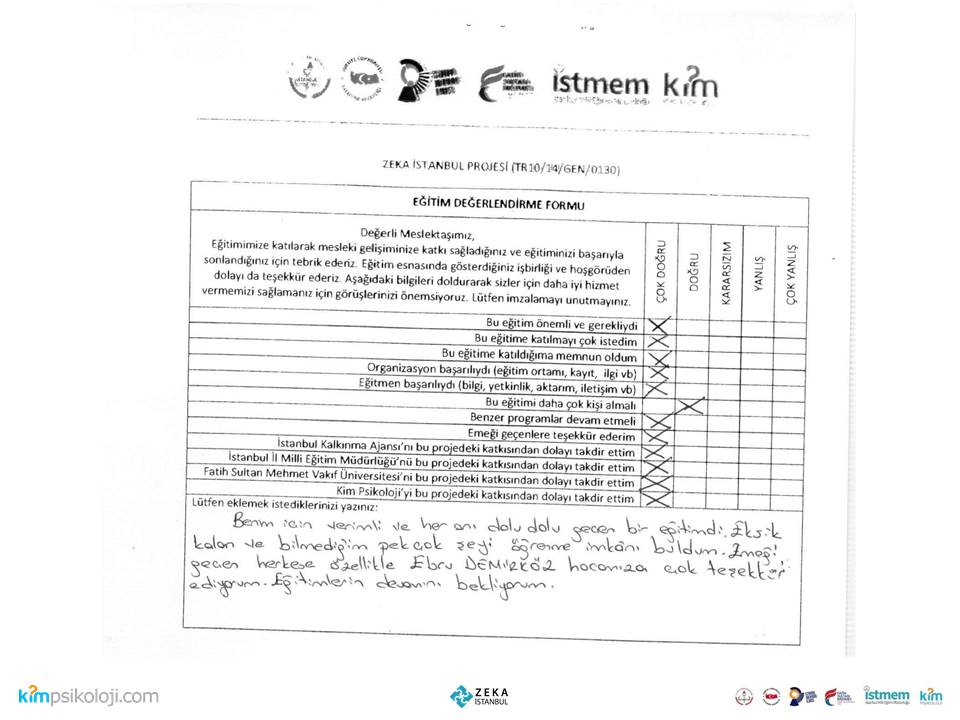 istmem kim
ZEKA İSTANBUL PROJESİ (TR10/14/GEN/0130)
EĞİTİM DEĞERLENDİRME FORMU
Değerli Meslektaşımız,
Eğitimimize katılarak mesleki gelişiminize katkı sağladığınız ve eğitiminizi başarıyla
sonlandığınız için tebrik ederiz. Eğitim esnasında gösterdiğiniz işbirliği ve hoşgörüden
dolayı da teşekkür ederiz. Aşağıdaki bilgileri doldurarak sizler için daha iyi hizmet
vermemizi sağlamanız için görüşlerinizi önemsiyoruz. Lütfen imzalamayı unutmayınız.
ÇOK DOĞRU
DOĞRU
KARARSIZIM
YANLIŞ
ÇOK YANLIŞ
Bu eğitim önemli ve gerekliydi
Bu eğitime katılmayı çok istedim
Bu eğitime katıldığıma memnun oldum
Organizasyon başarılıydı (eğitim ortamı, kayıt, ilgi vb)
Eğitmen başarılıydı (bilgi, yetkinlik, aktarım, iletişim vb)
Bu eğitimi daha çok kişi almalı
Benzer programlar devam etmeli
Emeği geçenlere teşekkür ederim
İstanbul Kalkınma Ajansı'nı bu projedeki katkısından dolayı takdir ettim
İstanbul İl Milli Eğitim Müdürlüğü'nü bu projedeki katkısından dolayı takdir ettim
Fatih Sultan Mehmet Vakıf Üniversitesi'ni bu projedeki katkısından dolayı takdir ettim
Kim Psikoloji'yi bu projedeki katkısından dolayı takdir ettim
Lütfen eklemek istediklerinizi yazınız:
Benim için verimli ve her anı dolu dolu geçen bir eğitimdi. Eksik
kalan ve bilmediğim pek çok şeyi öğrenme imkânı buldum. Emeği
geçen herkese özellikle Ebru DEMİRKÖZ hocamıza çok teşekkür
ediyorum. Eğitimlerin devamını bekliyorum.
kimpsikoloji.com
ZEKA
İSTANBUL
istmem
kim